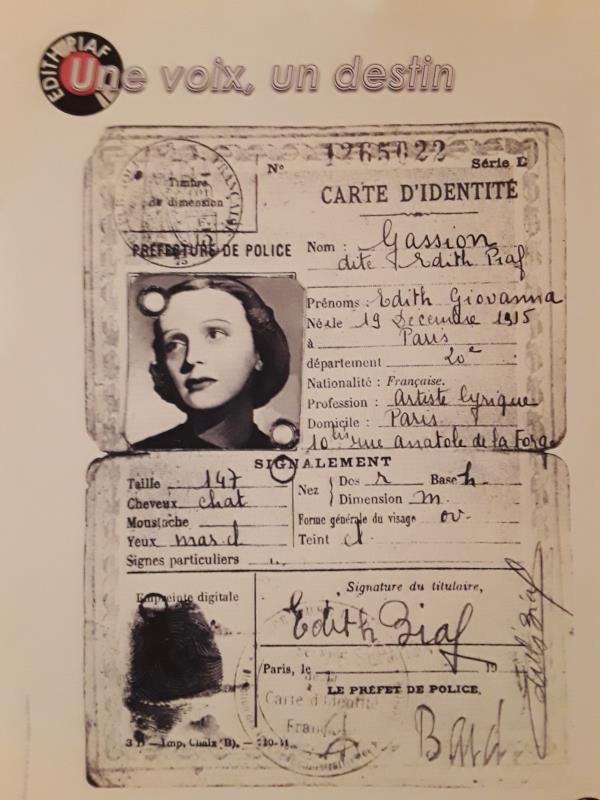 EDITH PIAF
Une voix, un destin
Nº 1265022 Série D
Timbre
de dimension
CARTE D'IDENTITÉ
PRÉFECTURE DE POLICE
Nom : Gassion
dite Edith Piaf
Prénoms : Edith Giovanna
Né le 19 Décembre 1915
à Paris
département 20e
Nationalité : Française.
Profession : Artiste lyrique
Domicile : Paris
10bis rue anatole de la Forge
SIGNALEMENT
Taille 147
Cheveux chat
Moustache
Yeux mar d
Signes particuliers
Nez Dos r Base h
Dimension m.
Forme générale du visage ov.
Teint cl
Empreinte digitale
Signature du titulaire,
Edith Piaf
Edith Piaf
Paris, le 19
LE PRÉFET DE POLICE,
Carte d'Identité
Bard
3 B — Imp. Chaix (B). —